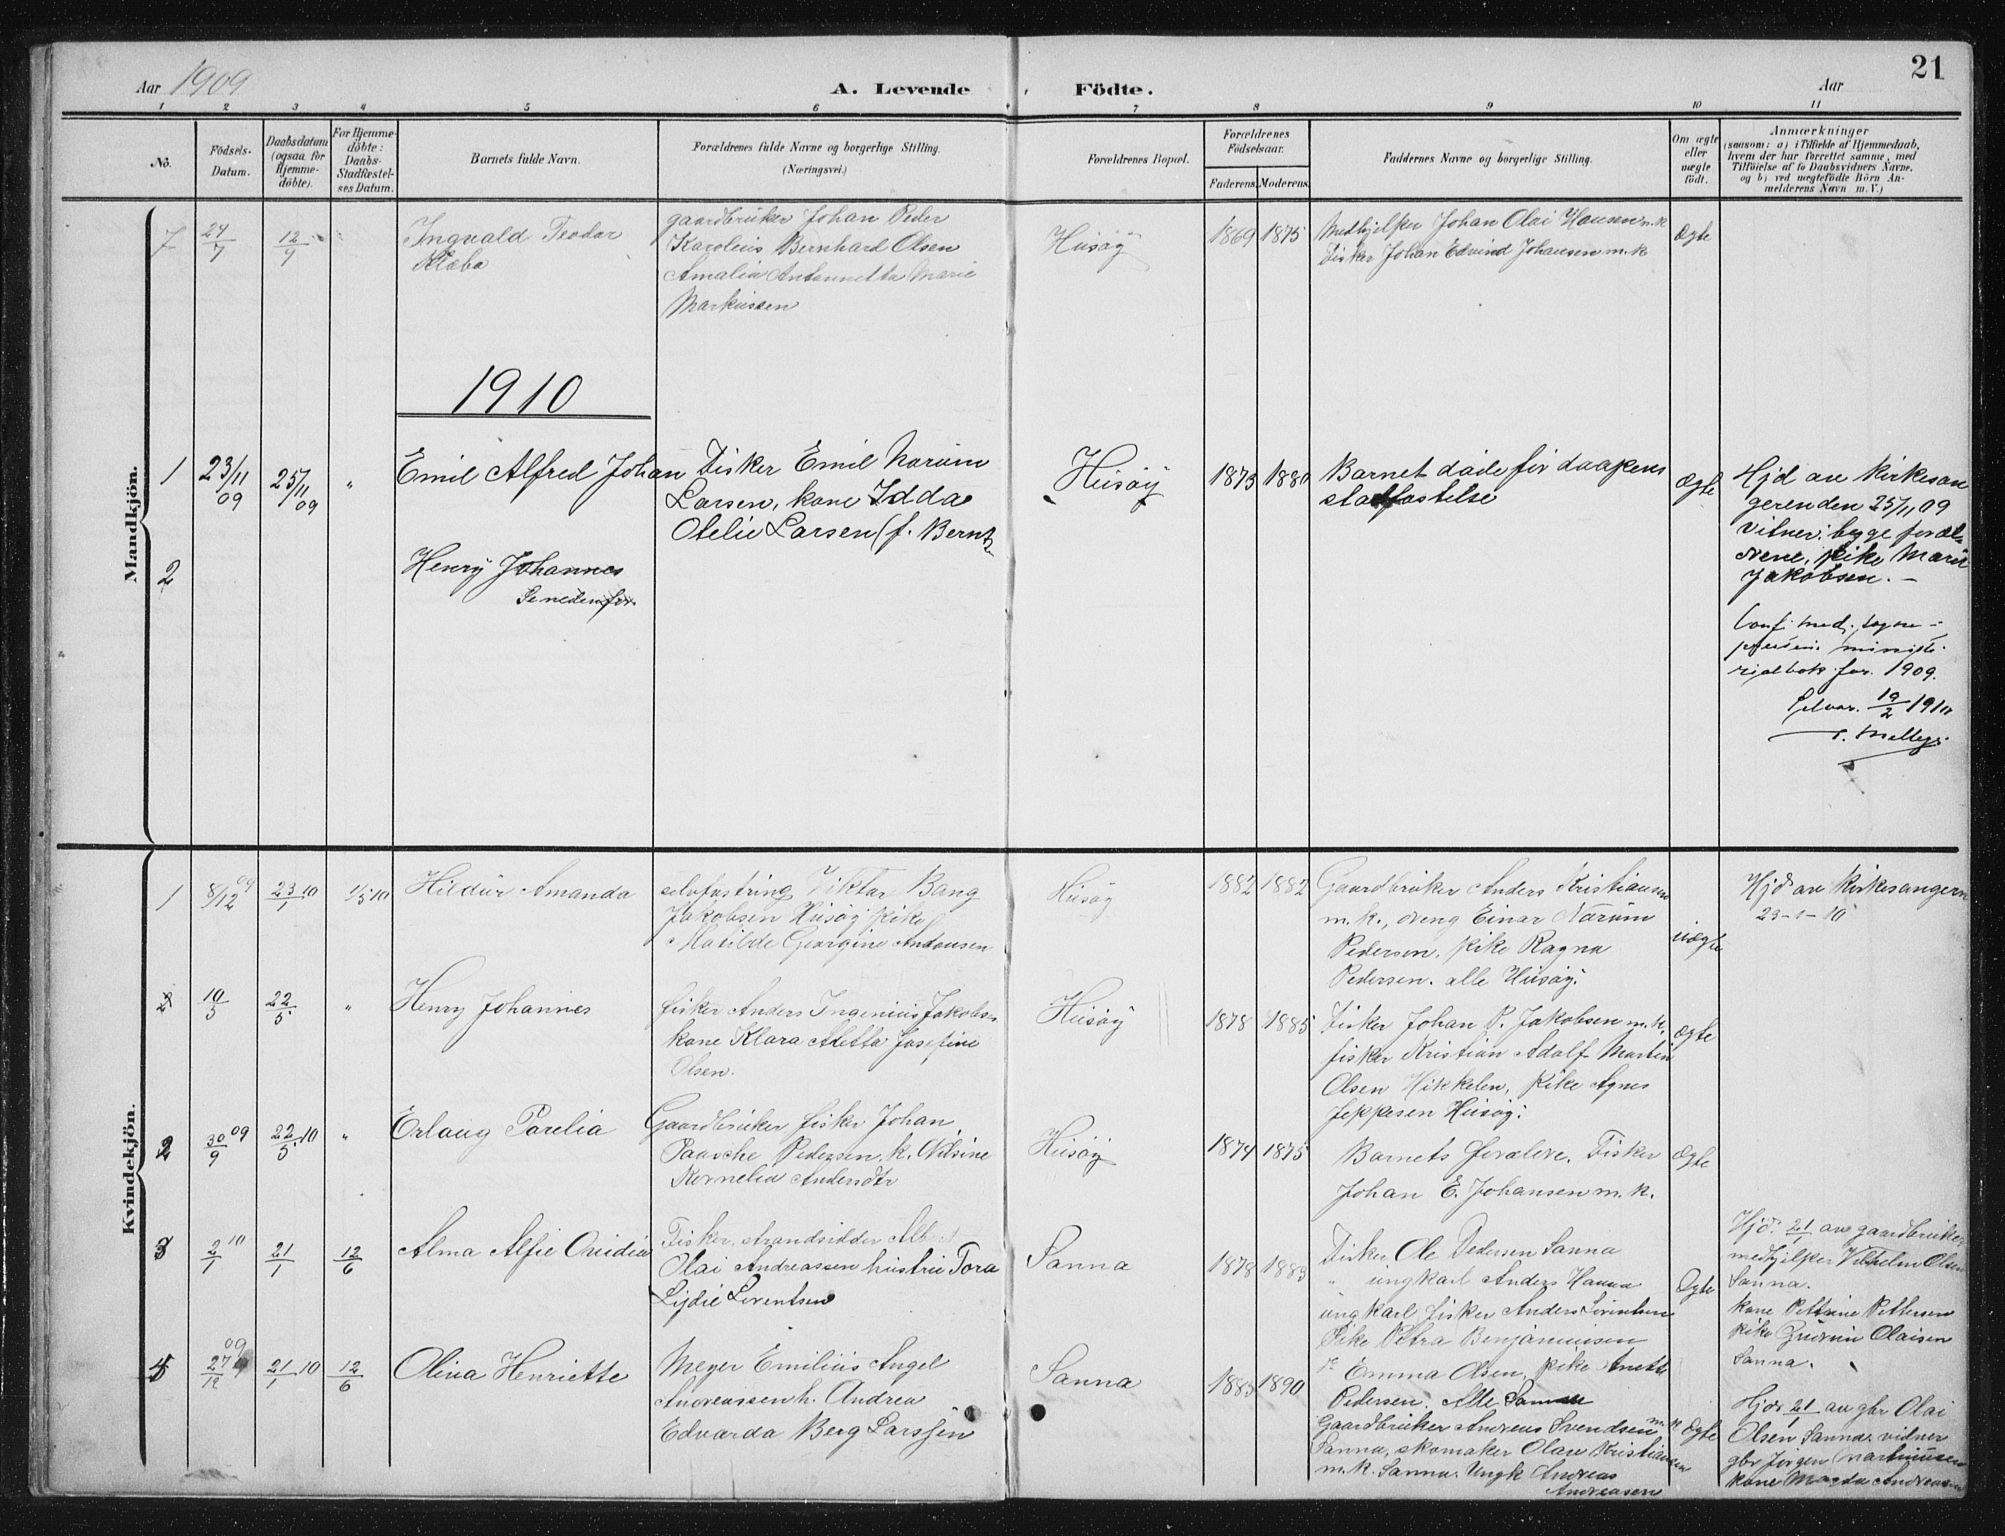 21
Aar 1909
A. Levende Födte.
Aar
1 2 3 4 5 6 7 8 9 10 11
No.
Födsels-Datum.
Daabsdatum (ogsaa for Hjemme-döbte).
For Hjemme-döbte: Daabs-Stadfæstel-ses Datum.
Barnets fulde Navn.
Forældrenes fulde Navne og borgerlige Stilling. (Næringsvei.)
Forældrenes Bopæl.
Forældrenes Födselsaar.
Faderens. Moderens.
Faddernes Navne og borgerlige Stilling.
Om ægte eller uægte födt.
Anmærkninger
(saasom: a) i Tilfælde af Hjemmedaab,
hvem der har forrettet samme, med
Tilföielse af to Daabsvidners Navne,
og b) ved uægtefödte Börn An-
melderens Navn m. V.)
Mandkjön.
7 24/7 12/9 Ingvald Teodor
Klæbo
gaardbruker Johan Peder
Karolius Bernhard Olsen
Amalia Antonnetta Marie
Markussen
Husöy
1869 1875
Medhjelper Johan Olai Hansen m.k
Fisker Johan Edvind Johansen m.k
Ægte
1910
1 23/11 09 25/11 09 " Emil Alfred Johan
Fisker Emil Narum
Larsen, kone Idda
Otelie Larsen (f. Bernt
Husöy
1873 1880
Barnet döde för daapens
stadfæstelse
Ægte
Hjd av kirkesan
geren den 25/11 09
vitner: begge foræl-
drene, pike Marie
Jakobsen. —
2 Henry Johannes
Se nedenfor.
Conf. med. sogne-
præstens ministe-
rialbok for 1909.
Selvær. 19/2 1910
Kvindekjön.
1 8/12 09 23/1 10 1/5 10 Hildur Amanda
selvfostring Viktor Bang
Jakobsen Husöy pike
Matilde Georgine Antonsen
Husöy
1882 1882
Gaardbruker Anders Kristiansen
m.k., dreng Einar Närum
Pedersen, pike Ragna
Pedersen. alle Husöy.
uægte
Hjd av kirkesangern
23-1-10
2 10/5 22/5 " Henry Johannes
fisker Anders Ingenius Jakobs-
kone Klara Aletta Josefine
Olsen.
Husöy
1878 1885
Fisker Johan P. Jakobsen m.k.
fisker Kristian Adolf Martin
Olsen Hikkelen, pike Agnes
Jeppesen Husöy.
Ægte
2 30/9 09 22/5 10 " Erlaug Parelia
Gaardbruker fisker Johan
Paasche Pedersen k. Nilsine
Kornelia Andersdtr
Husöy
1874 1875
Barnets forældre. Fisker
Johan E. Johansen m.k.
Ægte
3 2/1 10 21/1 12/6 Alma Alfie Ovidia
Fisker, strandsidder Alb
Olai Andreassen hustru Tora
Lydie Lorentsen
Sanna
1878 1883
Fisker Ole Pedersen Sanna
" ungkarl Anders Hanna
ungkarl fisker Anders Lorentsen
Pike Petra Benjaminsen
Emma Olsen, pike Anette
Pedersen. Alle Sanna
Ægte
Hjd. 21/1 av gaardbruker
medhjelper Vilhelm Olsen
Sanna.
kone Petrine Pettersen
pike Gudrun Olaisen
Sanna.
4 27/12 09 21/1 10 12/6 Olina Henriette
Meyer Emilius Angel
Andreassen h. Andrea
Edvarda Berg Larssen
Sanna
1885 1890
Gaardbruker Andreas Svendsen m.k
Sanna, skomaker Olav Kristiansen
m.k. Sanna. Ungk Andreas
Andreasen
Ægte
Hjd 21/1 av gbr Olai
Olsen Sanna. vidner
gbr Jörgen Martinusen
kone Magda Andreasen